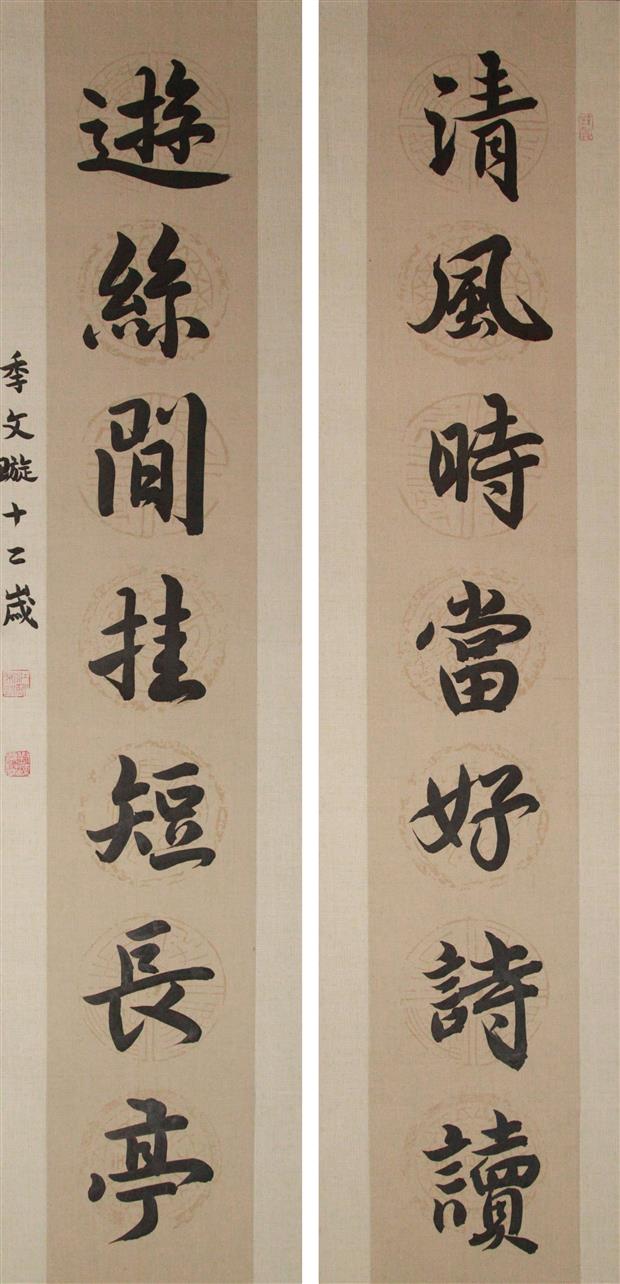 清風時當好詩讀
遊絲間挂短長亭
季文璇十二歲